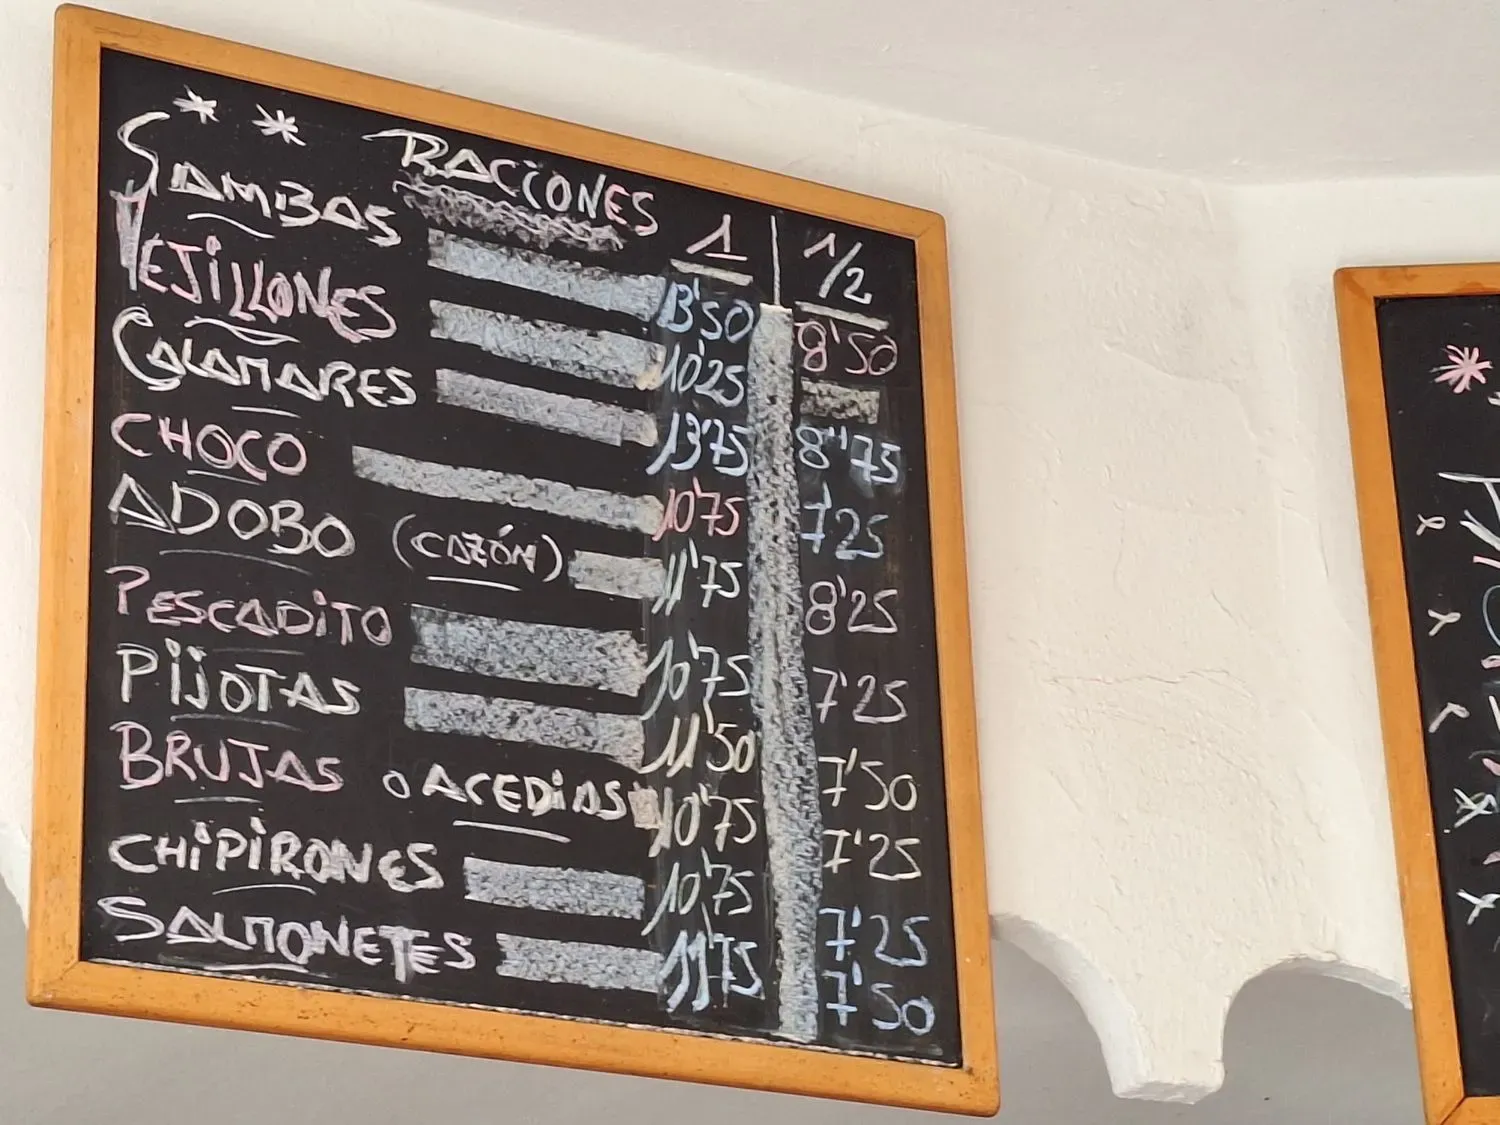 ** RACIONES 1 | 1/2
GAMBAS 13'50 8'50
MEJILLONES 10'25
CALAMARES 13'75 8'75
CHOCO 10'75 7'25
ADOBO (CAZÓN) 11'75 8'25
PESCADITO 10'75 7'25
PIJOTAS 11'50 7'50
BRUJAS o ACEDIAS 10'75 7'25
CHIPIRONES 10'75 7'25
SALMONETES 11'75 7'50